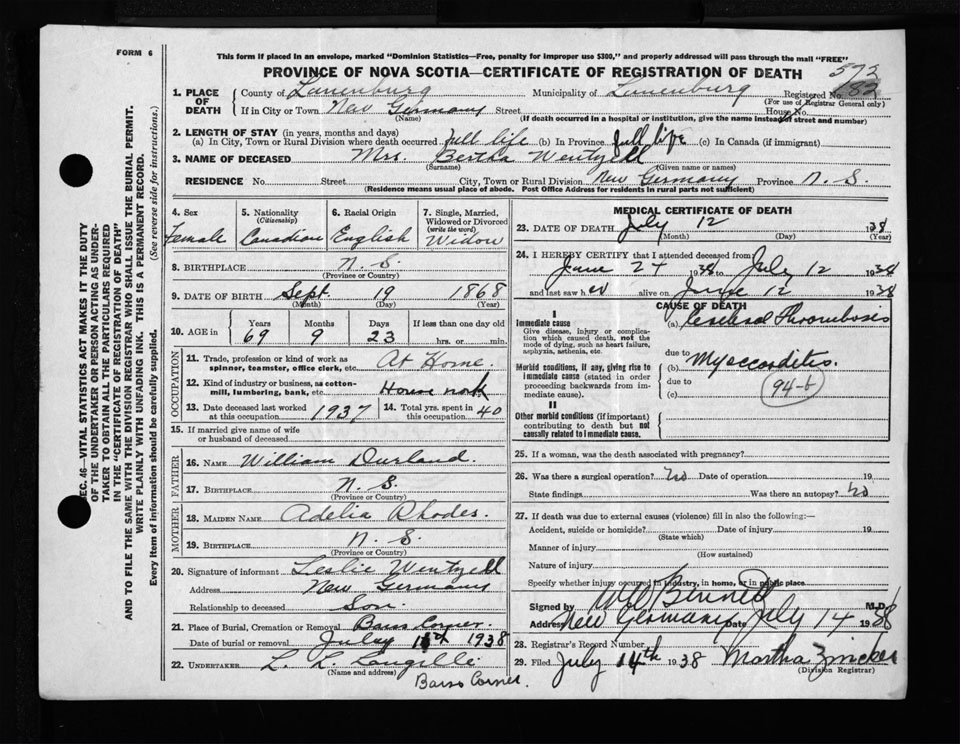 FORM 6
This form if placed in an envelope, marked "Dominion Statistics—Free, penalty for improper use $300," and properly addressed will pass through the mail "FREE"
PROVINCE OF NOVA SCOTIA—CERTIFICATE OF REGISTRATION OF DEATH
572
1. PLACE OF DEATH County of Lunenburg Municipality of Lunenburg Registered No. 82
(For use of Registrar General only)
If in City or Town New Germany Street House No.
(Name) (If death occurred in a hospital or institution, give the name instead of street and number)
2. LENGTH OF STAY (in years, months and days)
(a) In City, Town or Rural Division where death occurred full life (b) In Province full life (c) In Canada (if immigrant)
3. NAME OF DECEASED Mrs. Bertha Wentzell
(Surname) (Given name or names)
RESIDENCE No. Street City, Town or Rural Division New Germany Province N. S.
(Residence means usual place of abode. Post Office Address for residents in rural parts not sufficient)
4. Sex Female
5. Nationality (Citizenship) Canadian
6. Racial Origin English
7. Single, Married, Widowed or Divorced (write the word) Widow
8. BIRTHPLACE N. S.
(Province or Country)
9. DATE OF BIRTH Sept. 19 1868
(Month) (Day) (Year)
10. AGE in Years Months Days If less than one day old
69 9 23 hrs. or min.
OCCUPATION
11. Trade, profession or kind of work as spinner, teamster, office clerk, etc. At Home
12. Kind of industry or business, as cotton-mill, lumbering, bank, etc. House work
13. Date deceased last worked at this occupation 1937
14. Total yrs. spent in this occupation 40
15. If married give name of wife or husband of deceased
FATHER
16. NAME William Durland.
17. BIRTHPLACE N. S.
(Province or Country)
MOTHER
18. MAIDEN NAME Adelia Rhodes.
19. BIRTHPLACE N. S.
(Province or Country)
20. Signature of informant Leslie Wentzell
Address New Germany
Relationship to deceased Son.
21. Place of Burial, Cremation or Removal Barss Corner.
Date of burial or removal July 1938
22. UNDERTAKER L. L. Langille
(Name and address)
Barss Corner.
MEDICAL CERTIFICATE OF DEATH
23. DATE OF DEATH July 12 1938
(Month) (Day) (Year)
24. I HEREBY CERTIFY that I attended deceased from:
June 24 1938 to July 12 1938
and last saw her alive on June 12 1938
CAUSE OF DEATH
I
Immediate cause
Give disease, injury or complication which caused death, not the mode of dying, such as heart failure, asphyxia, asthenia, etc.
(a) Cerebral Thrombosis
due to
Morbid conditions, if any, giving rise to immediate cause (stated in order proceeding backwards from immediate cause).
(b) Myocarditis.
due to
(c)
94-b
II
Other morbid conditions (if important) contributing to death but not causally related to immediate cause.
25. If a woman, was the death associated with pregnancy?
26. Was there a surgical operation? No Date of operation 19
State findings Was there an autopsy? No
27. If death was due to external causes (violence) fill in also the following:—
Accident, suicide or homicide? Date of injury 19
(State which)
Manner of injury
(How sustained)
Nature of injury
Specify whether injury occurred in industry, in home, or in public place
Signed by M.D.
Address New Germany Date July 14 1938
28. Registrar's Record Number
29. Filed July 14th 1938 Martha Zinck
(Division Registrar)
SEC. 46—VITAL STATISTICS ACT MAKES IT THE DUTY
OF THE UNDERTAKER OR PERSON ACTING AS UNDER-
TAKER TO OBTAIN ALL THE PARTICULARS REQUIRED
IN THE "CERTIFICATE OF REGISTRATION OF DEATH"
AND TO FILE THE SAME WITH THE DIVISION REGISTRAR WHO SHALL ISSUE THE BURIAL PERMIT.
WRITE PLAINLY WITH UNFADING INK. THIS IS A PERMANENT RECORD.
Every item of information should be carefully supplied. (See reverse side for instructions.)